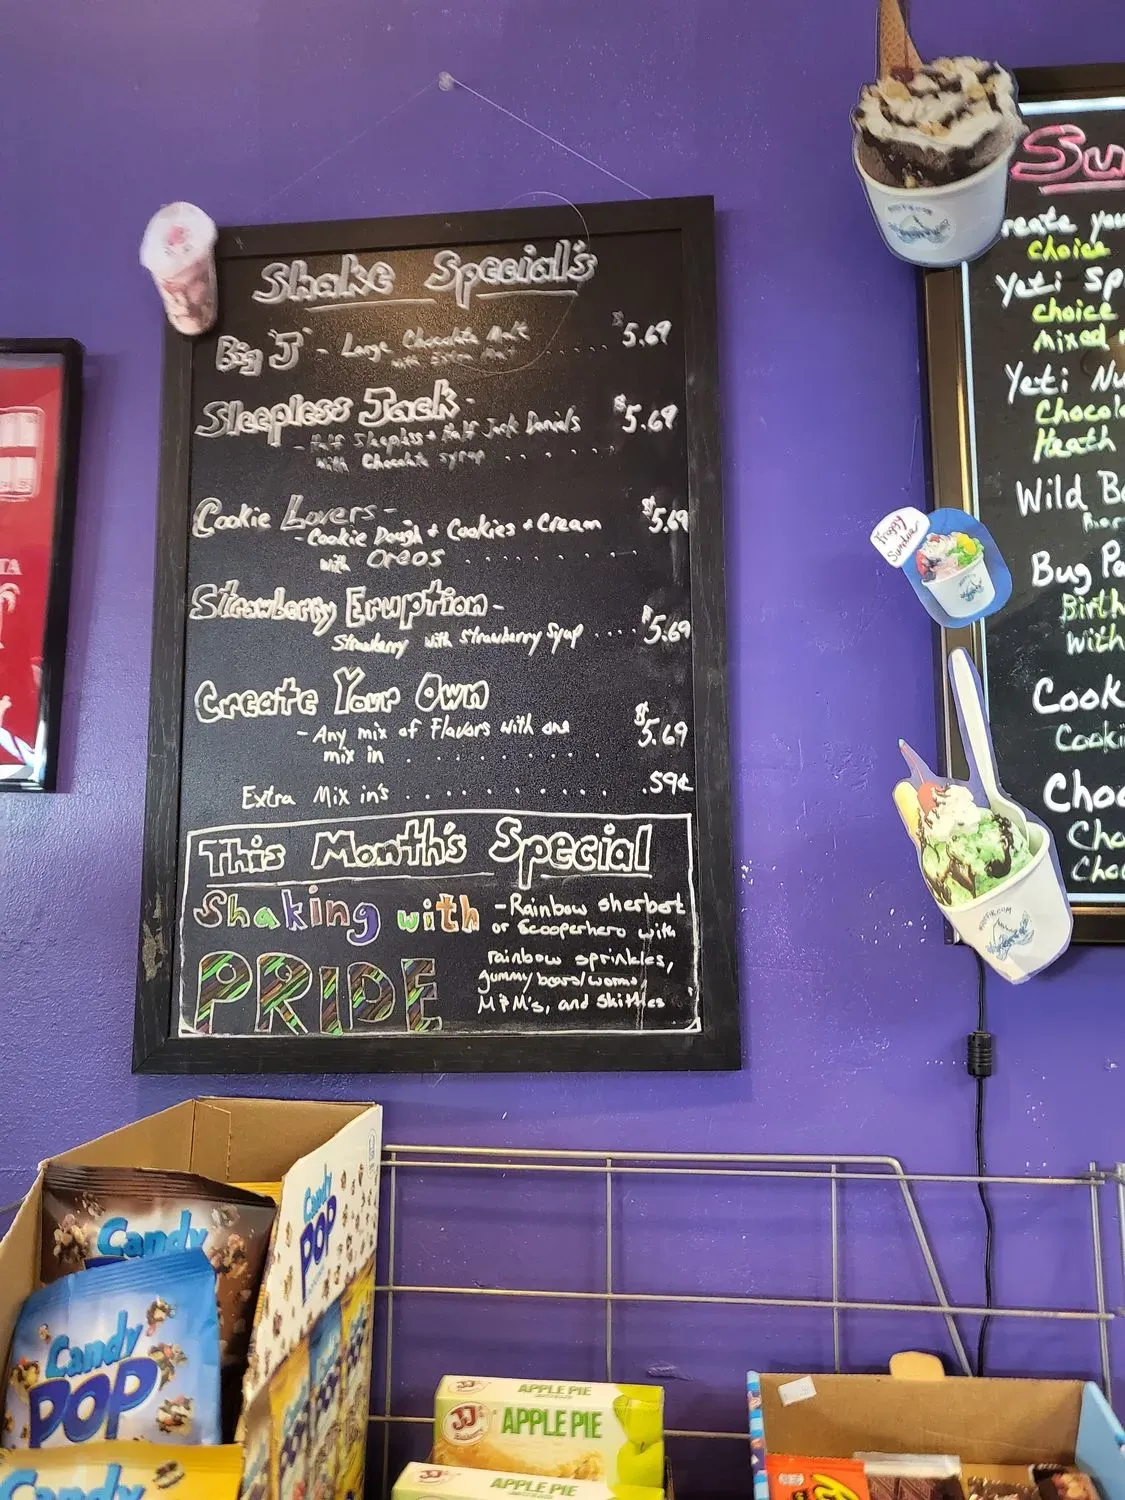 Shake Special's
Big "J" - Large Chocolate Malt $5.69
with Extra Malt
Sleepless Jack - $5.69
- Half Sleepless + Half Jack Daniels
with Chocolate syrup
Cookie Lovers - $5.69
- Cookie Dough + Cookies + Cream
with Oreos
Strawberry Eruption -
Strawberry with Strawberry Syrup .... $5.69
Create Your Own
- Any mix of Flavors with one $5.69
mix in
Extra Mix in's .59¢
This Month's Special
Shaking with
PRIDE
- Rainbow sherbert
or Scooperhero with
rainbow sprinkles,
gummy bears/worms,
M&M's, and skittles
Su
reate you
Choice
Yeti Sp
Choice
Mixed
Yeti Nu
Chocola
Heath
Wild B
Bug Pa
Birth
With
Cook
Cooki
Choc
Cho
Choc
Froggy
Sundae
TA
Candy
POP
Candy
Candy
POP
Candy
APPLE PIE
JJ's
Bakery
APPLE PIE
APPLE PIE
Reese's